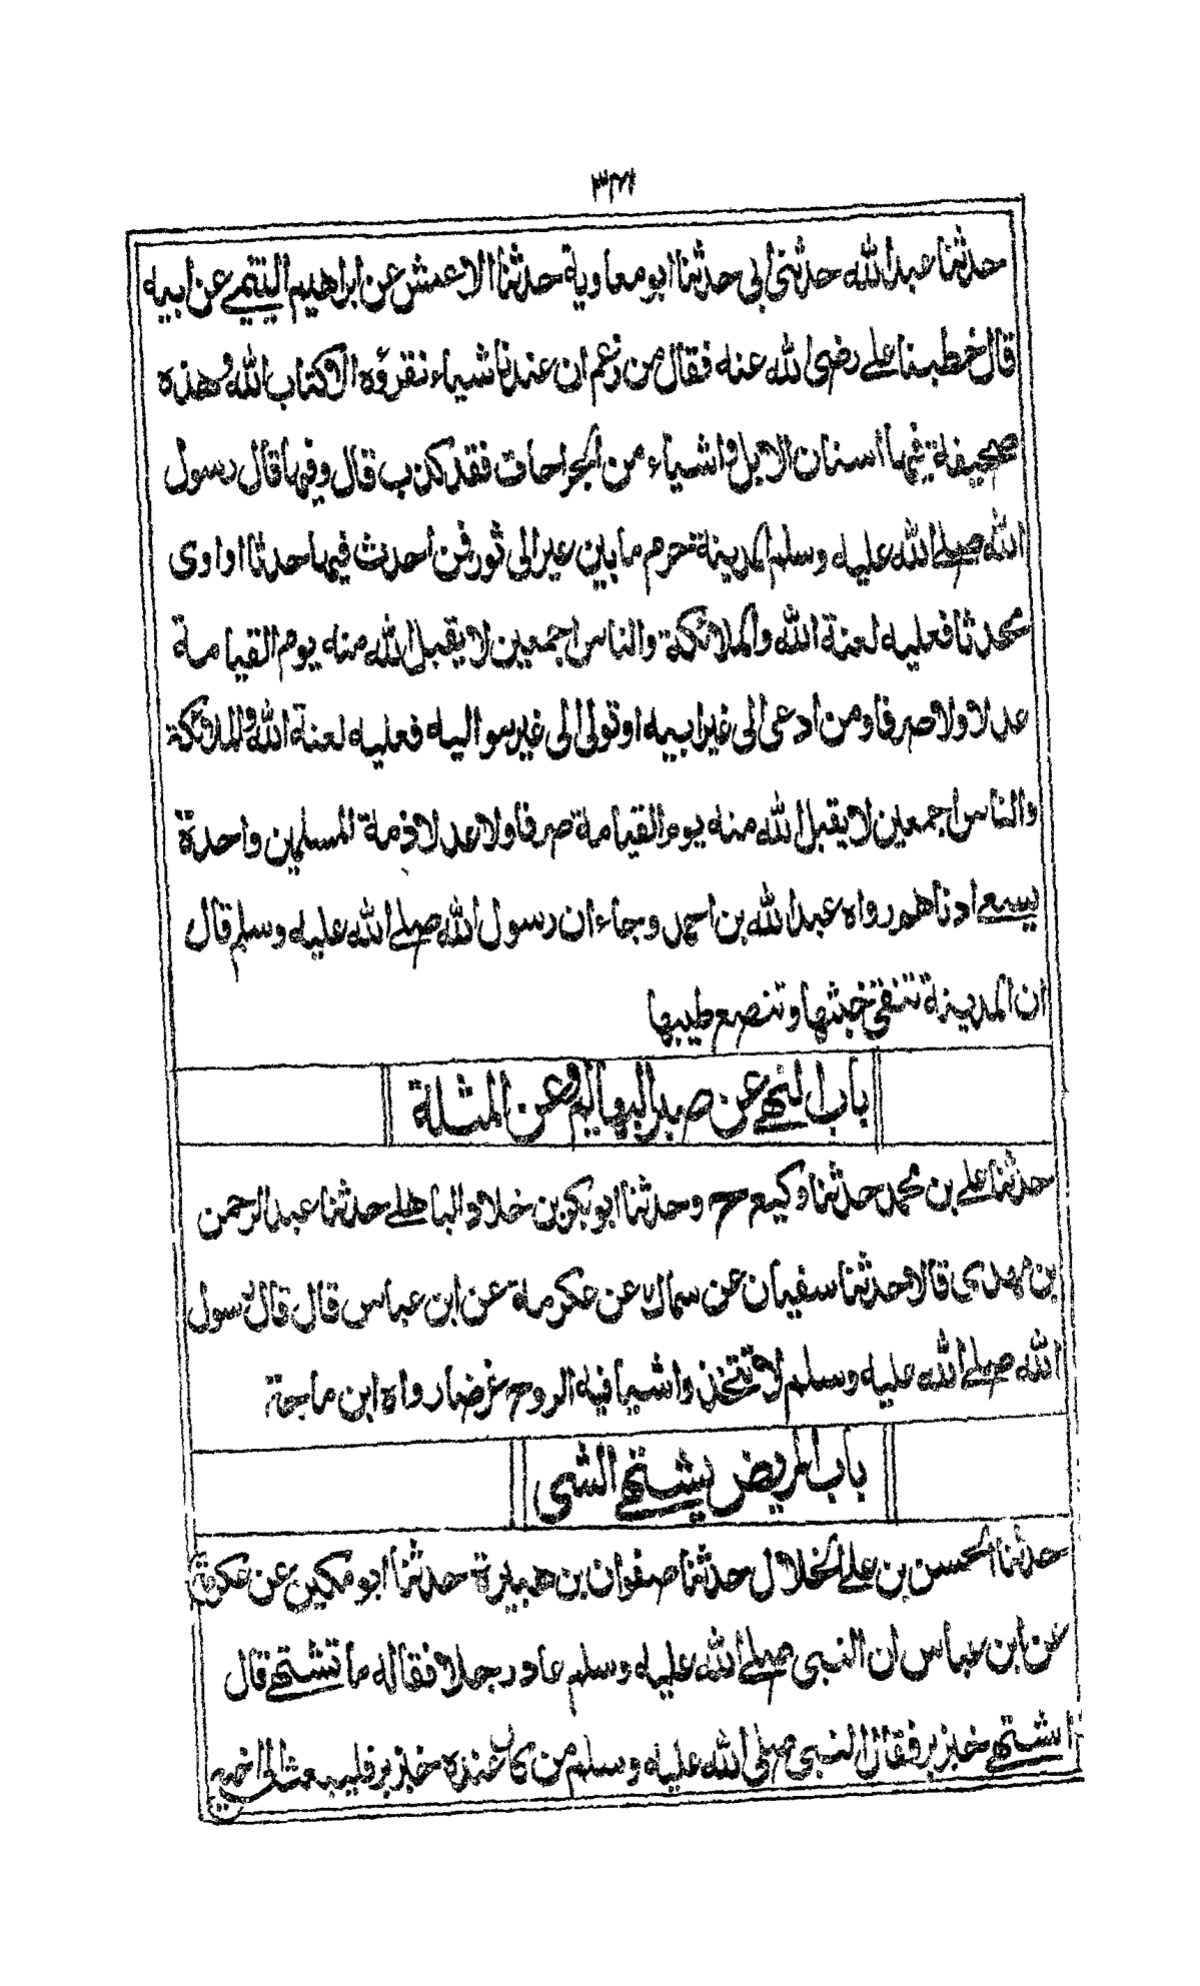 حدثنا عبد الله حدثنى ابى حدثنا ابو معاوية حدثنا الاعمش عن ابراهيم التيمى عن ابيه
قال خطبنا على رضى الله عنه فقال من زعم ان عندنا شياء نقرؤه الا كتاب الله وهذه
صحيفة فيها اسنان الابل واشياء من الجراحات فقد كذب قال وفيها قال رسول
الله صلى الله عليه وسلم المدينة حرم ما بين عير الى ثور فمن احدث فيها حدثا او اوى
محدثا فعليه لعنة الله والملائكة والناس اجمعين لا يقبل الله منه يوم القيامة
عدلا ولا صرفا ومن ادعى الى غير ابيه او تولى الى غير مواليه فعليه لعنة الله والملائكة
والناس اجمعين لا يقبل الله منه يوم القيامة صرفا ولا عدلا ذمة المسلمين واحدة
يسعى ادناهم رواه عبد الله بن احمد وجاء ان رسول الله صلى الله عليه وسلم قال
ان المدينة تنفى خبثها وتنصع طيبها
باب النهى عن صبر البهائم وعن المثلة
حدثنا على بن محمد حدثنا وكيع ح وحدثنا ابو بكر بن خلاد الباهلى حدثنا عبد الرحمن
بن مهدى قالا حدثنا سفيان عن سماك عن عكرمة عن ابن عباس قال قال رسول
الله صلى الله عليه وسلم لا تتخذوا شيا فيه الروح غرضا رواه ابن ماجة
باب المريض يشتهى الشى
حدثنا الحسن بن على الخلال حدثنا صفوان بن هبيرة حدثنا ابو مكين عن عكرمة
عن ابن عباس ان النبى صلى الله عليه وسلم عاد رجلا فقال له ما تشتهى قال
اشتهى خبز بر فقال النبى صلى الله عليه وسلم من كان عنده خبز بر فليبعث الى اخيه